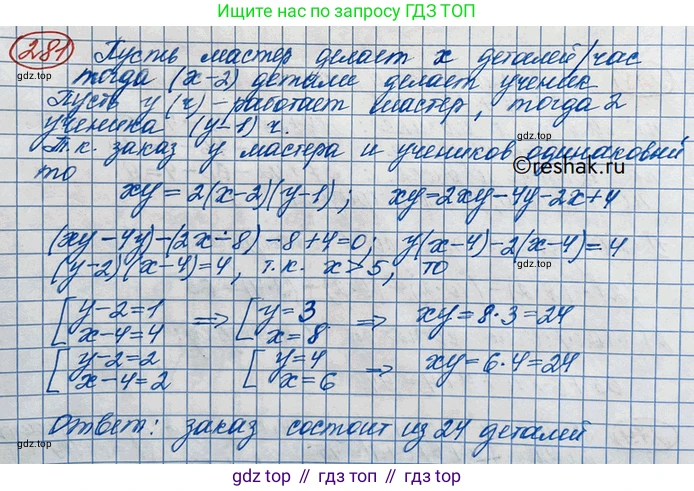 Ищите нас по запросу ГДЗ ТОП
281 Пусть мастер делает x деталей/час
тогда (x-2) детали делает ученик
Пусть y (ч) - работает мастер, тогда 2
ученика (y-1) ч.
Т.к. заказ у мастера и учеников одинаковый
©reshak.ru
то
xy = 2(x-2)(y-1); xy=2xy-4y-2x+4
(xy-4y)-(2x-8)-8+4=0; y(x-4)-2(x-4)=4
(y-2)(x-4)=4, т.к. x>5, то
[{y-2=1 => [{y=3 => xy=8·3=24
x-4=4 x=8
[{y-2=2 [{y=4 -> xy=6·4=24
x-4=2 x=6
Ответ: заказ состоит из 24 деталей
gdz top // gdz.top // gdz.top